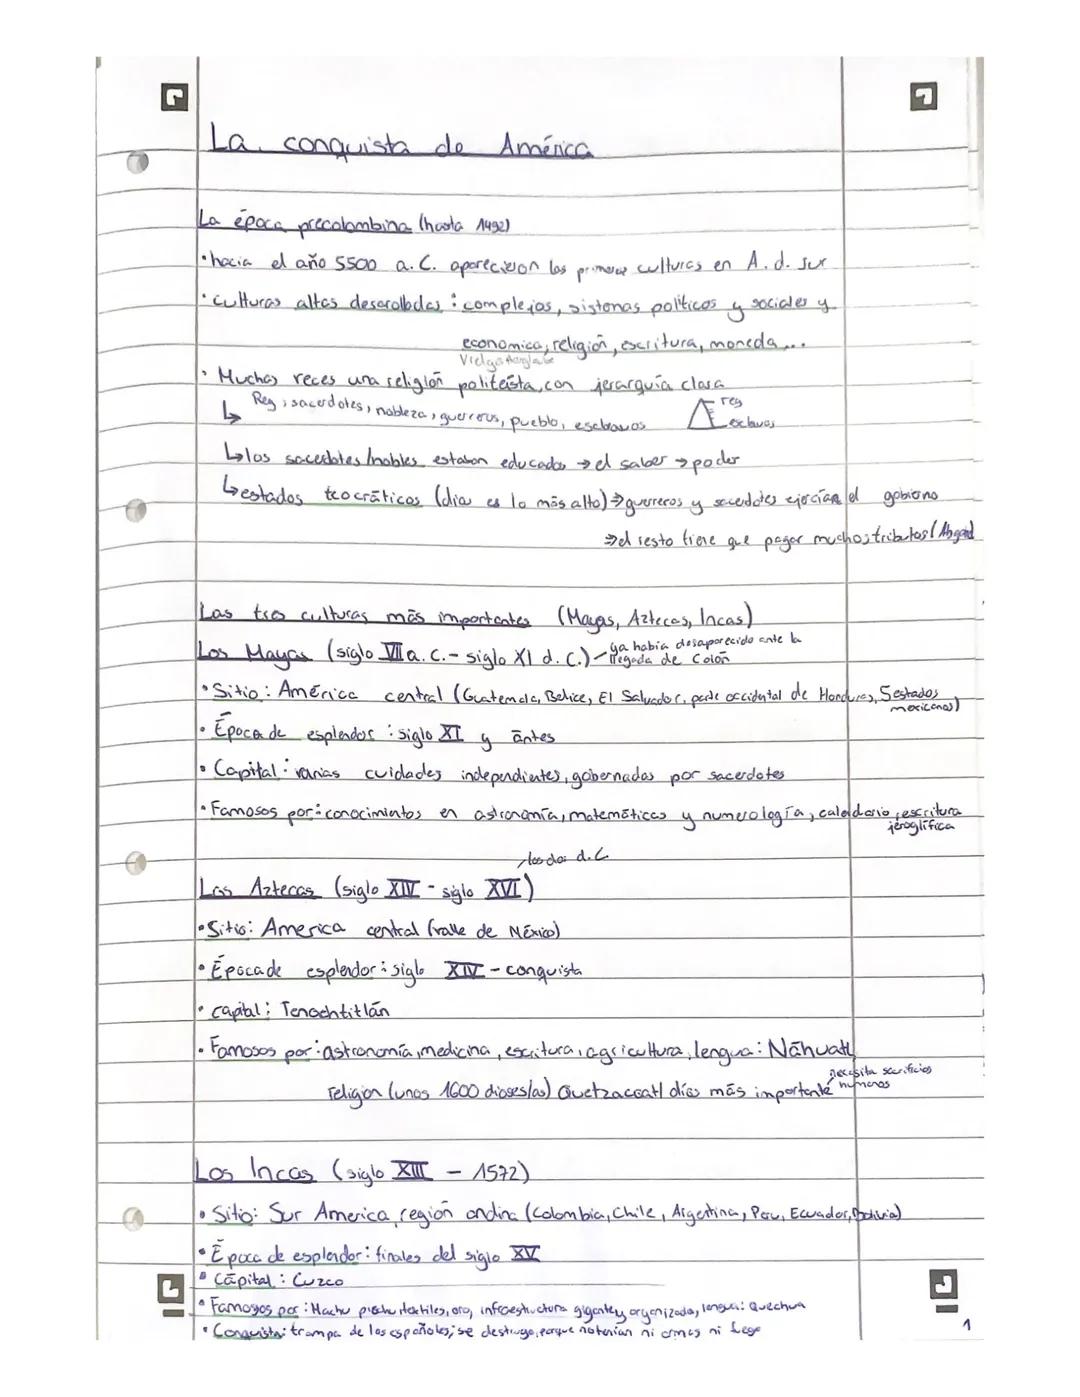 La conquista de América
La época precolombina (hasta 1492)
• hacia el año 5500 a.C. aparecieron las primeras culturas en A. d. Sur
• culturas altas desarolladas : complejas, sistemas políticos y sociales y
economica, religión, escritura, moneda...
• Muchas veces una religión politeísta, con jerarquía clara
↳ Rey, sacerdotes, nobleza, guerreros, pueblo, esclavos
rey
esclavos
↳ los sacerdotes/nobles estaban educados → el saber → poder
↳ estados teocráticos (dios es lo más alto) ⇒ guerreros y sacerdotes ejercían el gobierno
⇒ el resto tiene que pagar muchos tributos (Abgabe
Las tres culturas más importantes (Mayas, Aztecas, Incas)
Los Mayas (siglo VII a. C. - siglo XI d. C.) - ya había desaparecido ante la llegada de Colón
• Sitio: América central (Guatemala, Belice, El Salvador, parte occidental de Honduras, 5 estados
mexicanos)
• Época de esplendor : siglo XI y ántes
• Capital: varias cuidades independientes, gobernadas por sacerdotes
• Famosos por: conocimientos en astronomía, matemáticas y numerología, calendario, escritura
jeroglífica
los dos d.C.
Los Aztecas (siglo XIV - siglo XVI)
• Sitio: America central (valle de México)
• Época de esplendor: siglo XIV - conquista
• capital: Tenochtitlán
• Famosos por: astronomía, medicina, escritura, agricultura, lengua: Náhuatl
necesita sacrificios
religion (unos 1600 dioses/as) Quetzacoatl dios más importante humanos
Los Incas (siglo XIII - 1572)
• Sitio: Sur America, región andina (Colombia, Chile, Argentina, Peru, Ecuador, Bolivia)
• Época de esplendor: finales del siglo XV
• Cápital : Cuzco
• Famosos por : Machu picchu, textiles, oro, infraestructura gigante y organizada, lengua: Quechua
• Conquista: trampa de los españoles; se destruyo, porque no tenían ni armas ni fuego
1